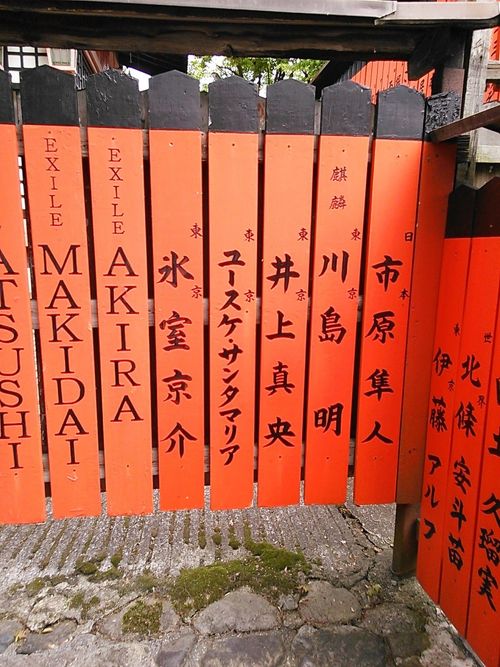 ATSUSHI
EXILE
MAKIDAI
EXILE
AKIRA
東京
氷室京介
東京
ユースケ・サンタマリア
東京
井上真央
麒麟
東京
川島 明
日本
市原隼人
東京
伊藤アルフ
世界
北條安斗苗
久瑠実